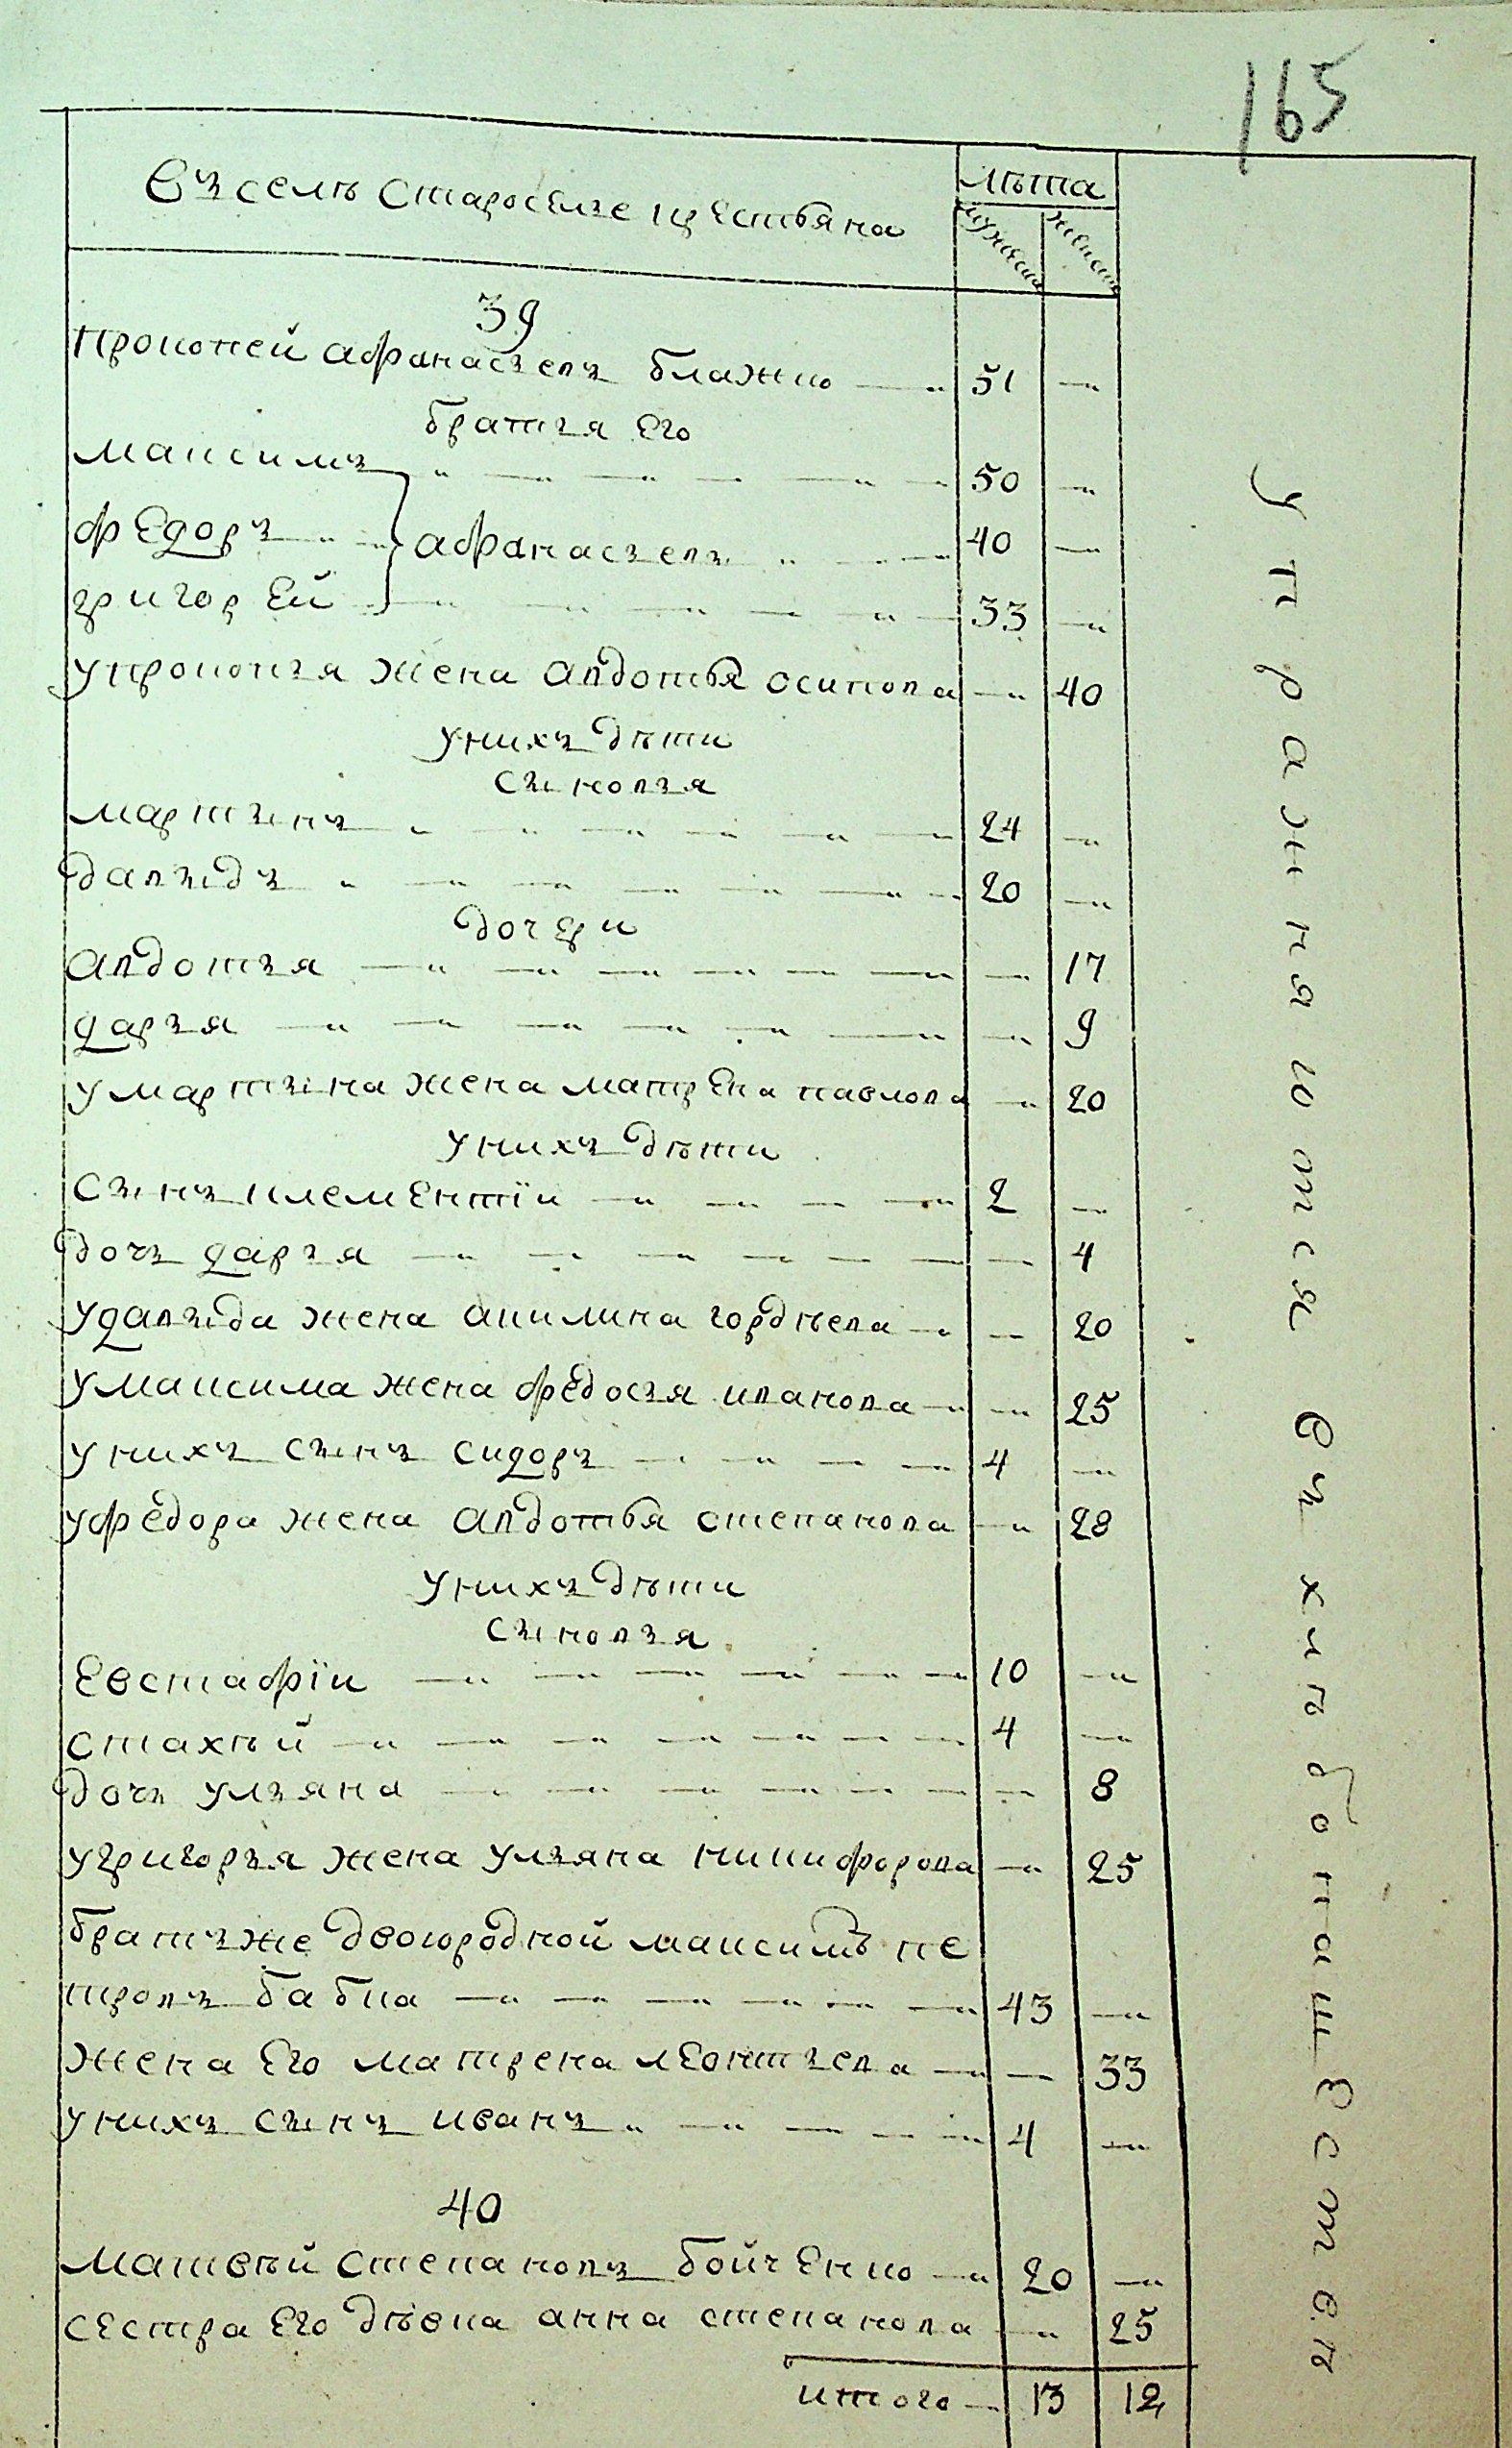 165
Въ селѣ Староселье крестьяна
лѣта
мужеска
женска
39
Прокопей афанасьевъ блажко 51
братья его
максимъ 50
федоръ афанасьевъ 40
григорей 33
у прокопья жена авдотья осипова 40
у нихъ дѣти
сыновья
мартынъ 24
давыдъ 20
дочери
авдотья 17
дарья 9
у мартына жена матрена павлова 20
у нихъ дѣти
сынъ климентїи 2
дочь дарья 4
у давыда жена акилина гордѣева 20
у максима жена федосья иванова 25
у нихъ сынъ сидоръ 4
у федора жена авдотья степанова 28
у нихъ дѣти
сыновья
евстафїи 10
стахѣй 4
дочь ульяна 8
у григорья жена ульяна никифорова 25
братъ же двоюродной максимъ пе
тровъ бабка 43
жена его матрена леонтьева 33
у нихъ сынъ иванъ 4
40
матвѣй степановъ бойченко 20
сестра его дѣвка анна степанова 25
итого 13 12
упражняются въ хлебопашестве